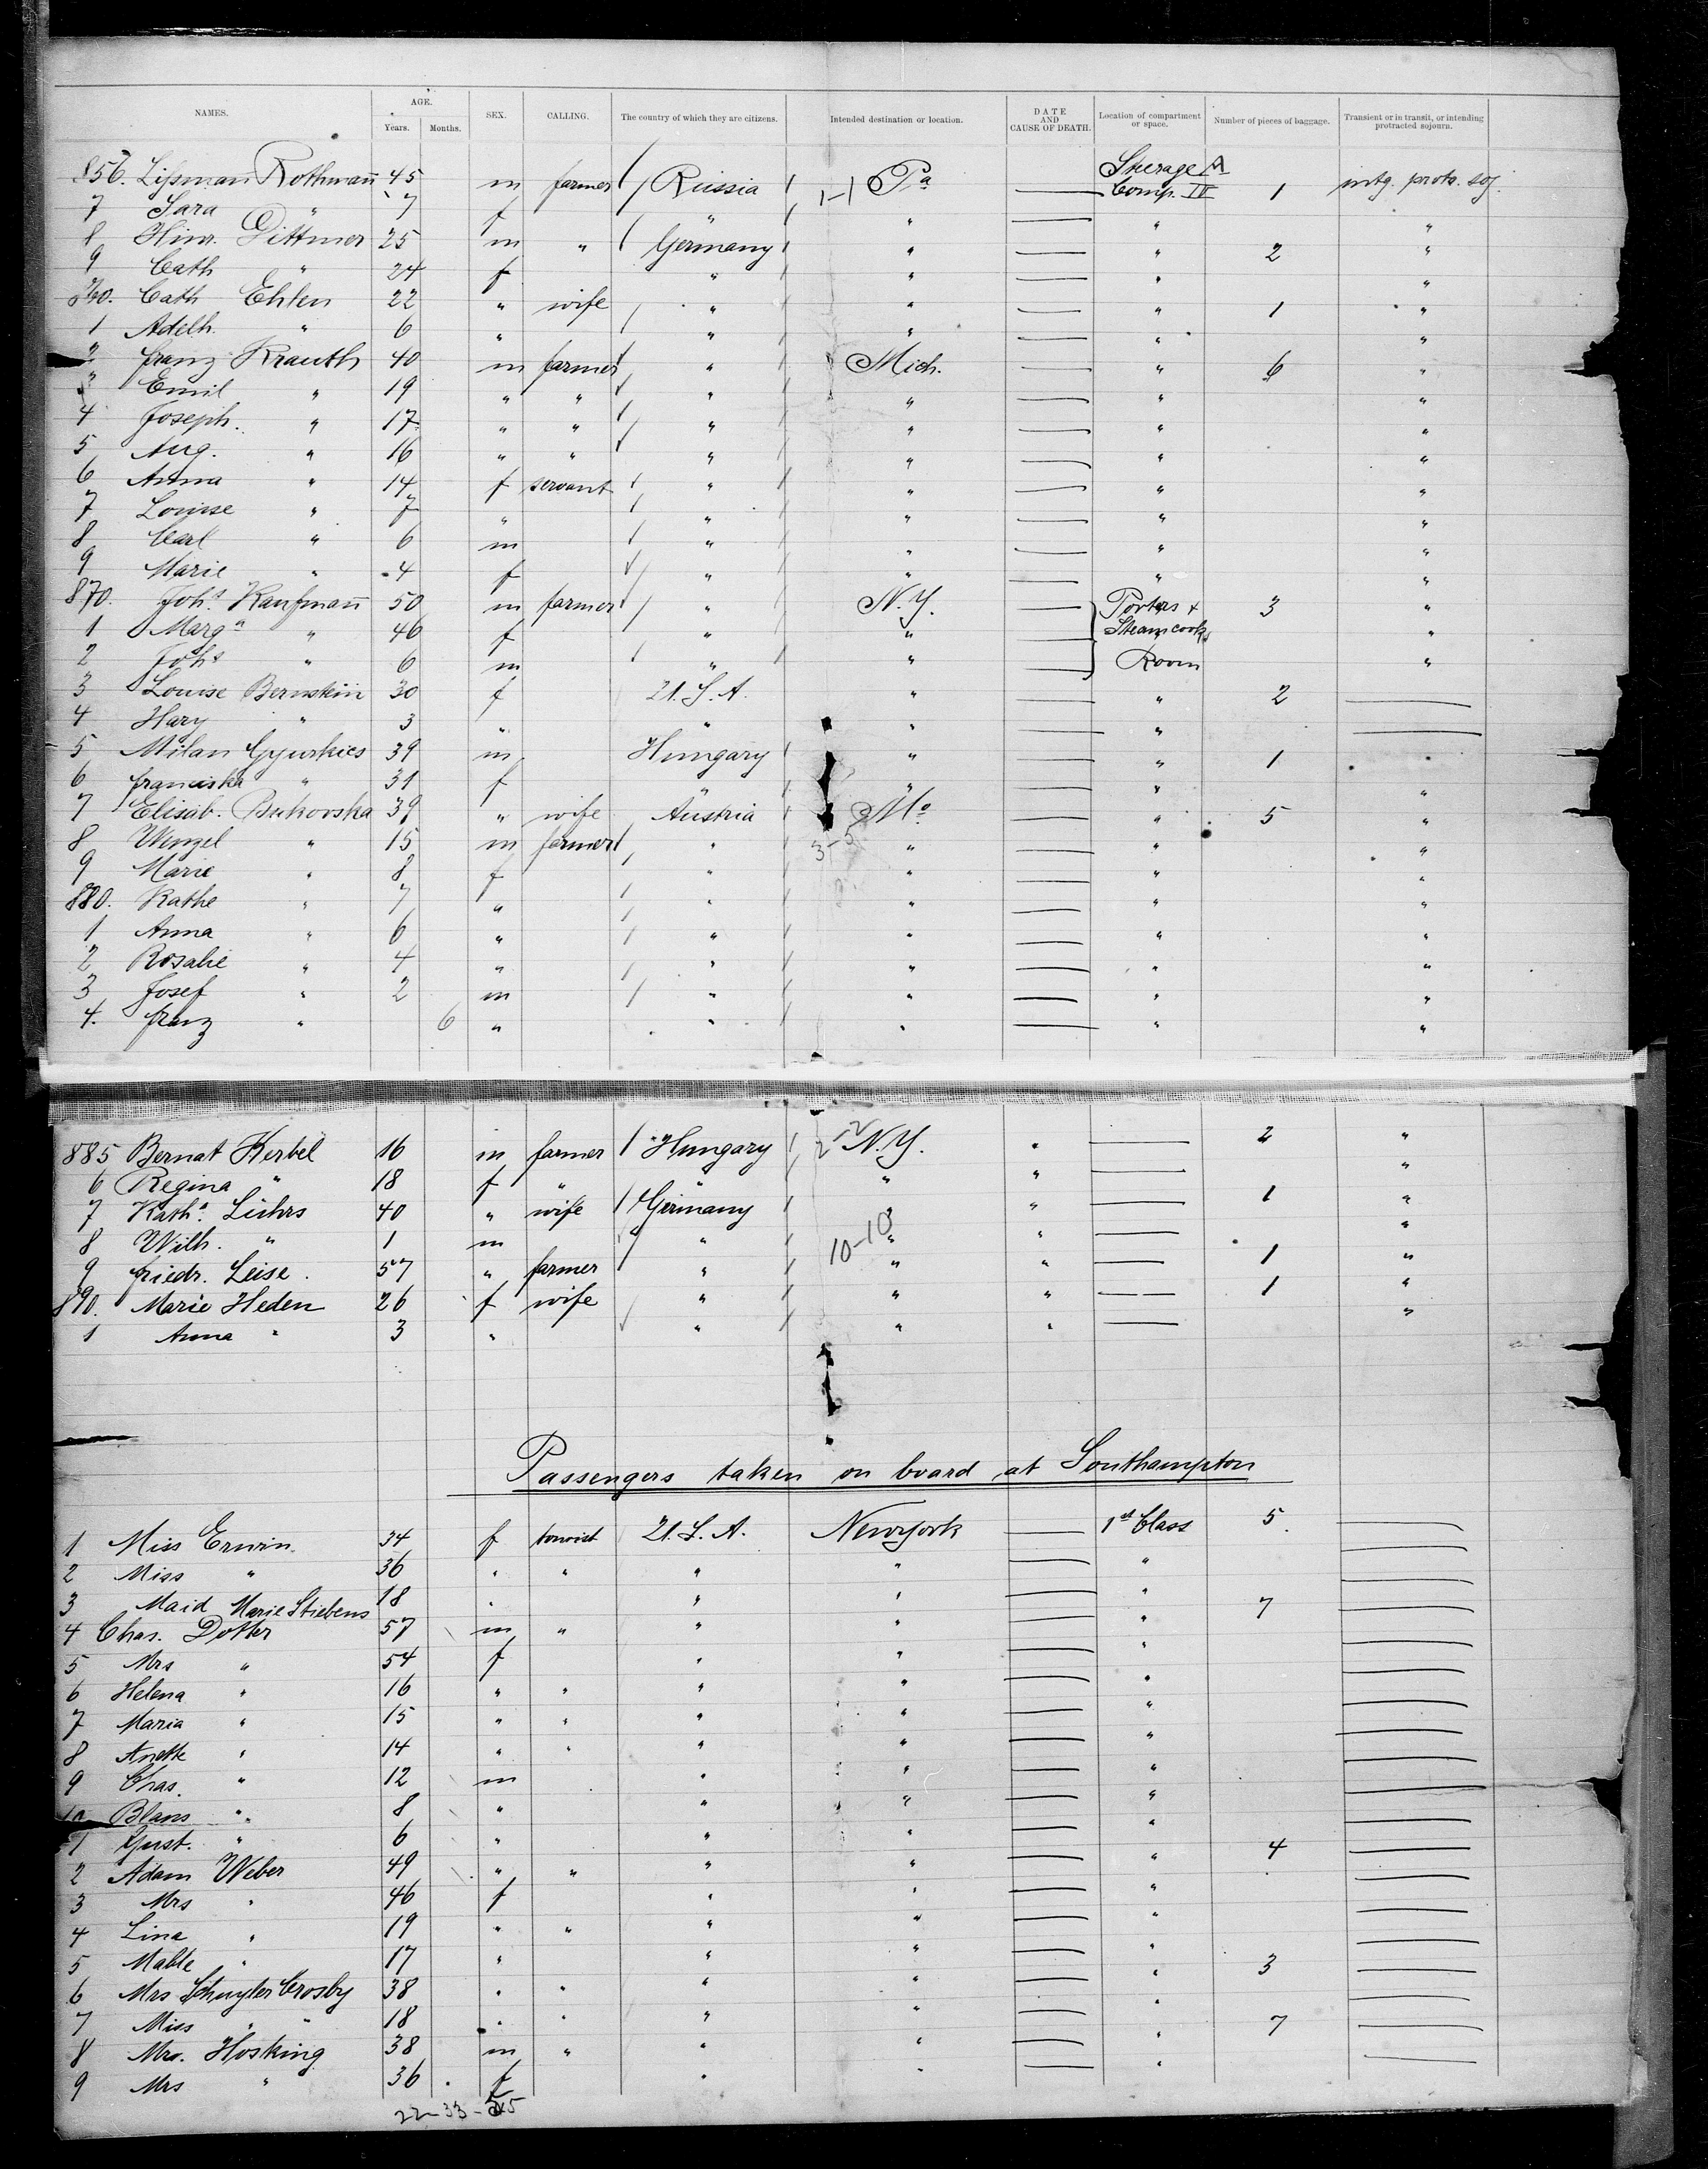 NAMES. AGE. Years. Months. SEX. CALLING. The country of which they are citizens. Intended destination or location. DATE AND CAUSE OF DEATH. Location of compartment or space. Number of pieces of baggage. Transient or in transit, or intending protracted sojourn.
856. Lipman Rothmañ 45 m farmer Russia 1-1 Pa Steerage A Comp. IV 1 intg. protr. soj.
7 Sara " 7 f " " " "
8 Hinr. Dittmer 25 m " Germany " " 2 "
9 Cath " 24 f " " " "
860. Cath Ehlen 22 " wife " " " 1 "
1 Adelh. " 6 " " " " "
2 Franz Krauth 40 m farmer " Mich. " 6 "
3 Emil " 19 " " " " " "
4 Joseph. " 17 " " " " " "
5 Aug. " 16 " " " " " "
6 Anna " 14 f servant " " " "
7 Louise " 7 " " " " "
8 Carl " 6 m " " " "
9 Marie " 4 f " " " "
870. Johs. Kaufmañ 50 m farmer " N.Y. Porters + 3 "
1 Marga " 46 f " " Steamcooks "
2 Johs " 6 m " " Room "
3 Louise Bernstein 30 f U.S.A. " " 2
4 Hary " 3 " " " "
5 Milan Gyurkics 39 m Hungary " " 1
6 Franciska " 31 f " " " "
7 Elisab. Bukovska 39 " wife Austria Mo " 5 "
8 Wenzel " 15 m farmer " 3-5 " " "
9 Marie " 8 f " " " "
880. Kathe " 7 " " " " "
1 Anna " 6 " " " " "
2 Rosalie " 4 " " " " "
3 Josef " 2 m " " " "
4. Franz " 6 " " " " "
885 Bernat Kerbel 16 m farmer Hungary N.Y. " 2 "
6 Regina " 18 f " " " " "
7 Katha. Lührs 40 " wife Germany " " 1 "
8 Wilh. " 1 m " 10-10 " " "
9 Friedr. Leise. 57 " farmer " " " 1 "
890. Marie Heden 26 f wife " " " 1 "
1 Anna " 3 " " " " "
Passengers taken on board at Southampton
1 Miss Erwin 34 f tourist U.S.A. Newyork 1st Class 5
2 Miss " 36 " " " " "
3 Maid Marie Stiebens 18 " " " "
4 Chas. Dotter 57 m " " " " 7
5 Mrs " 54 f " " "
6 Helena " 16 " " " " "
7 Maria " 15 " " " " "
8 Anette " 14 " " " " "
9 Chas. " 12 m " " "
10 " 8 " " " "
1 Gust. " 6 " " " "
2 Adam Weber 49 " " " " " 4
3 Mrs " 46 f " " "
4 Lina " 19 " " " " "
5 Mable " 17 " " " "
6 Mrs Schuyler Crosby 38 " " " " " 3
7 Miss " " 18 " " " " "
8 Mr. Hosking 38 m " " " " 7
9 Mrs " 36 f " " "
22-33-